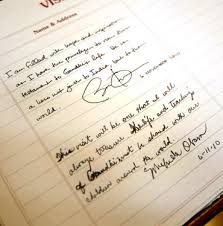 VIS
Name & Address
I am filled with hope and inspiration
as I have the privilege to view this
testament to Gandhi's life. He is
a hero not just to India, but to the
world.
6 November 2010
This visit will be one that I will
always treasure. life and teachings
of Gandhi must be shared with our
children around the world.
Michelle Obama
6-11-10